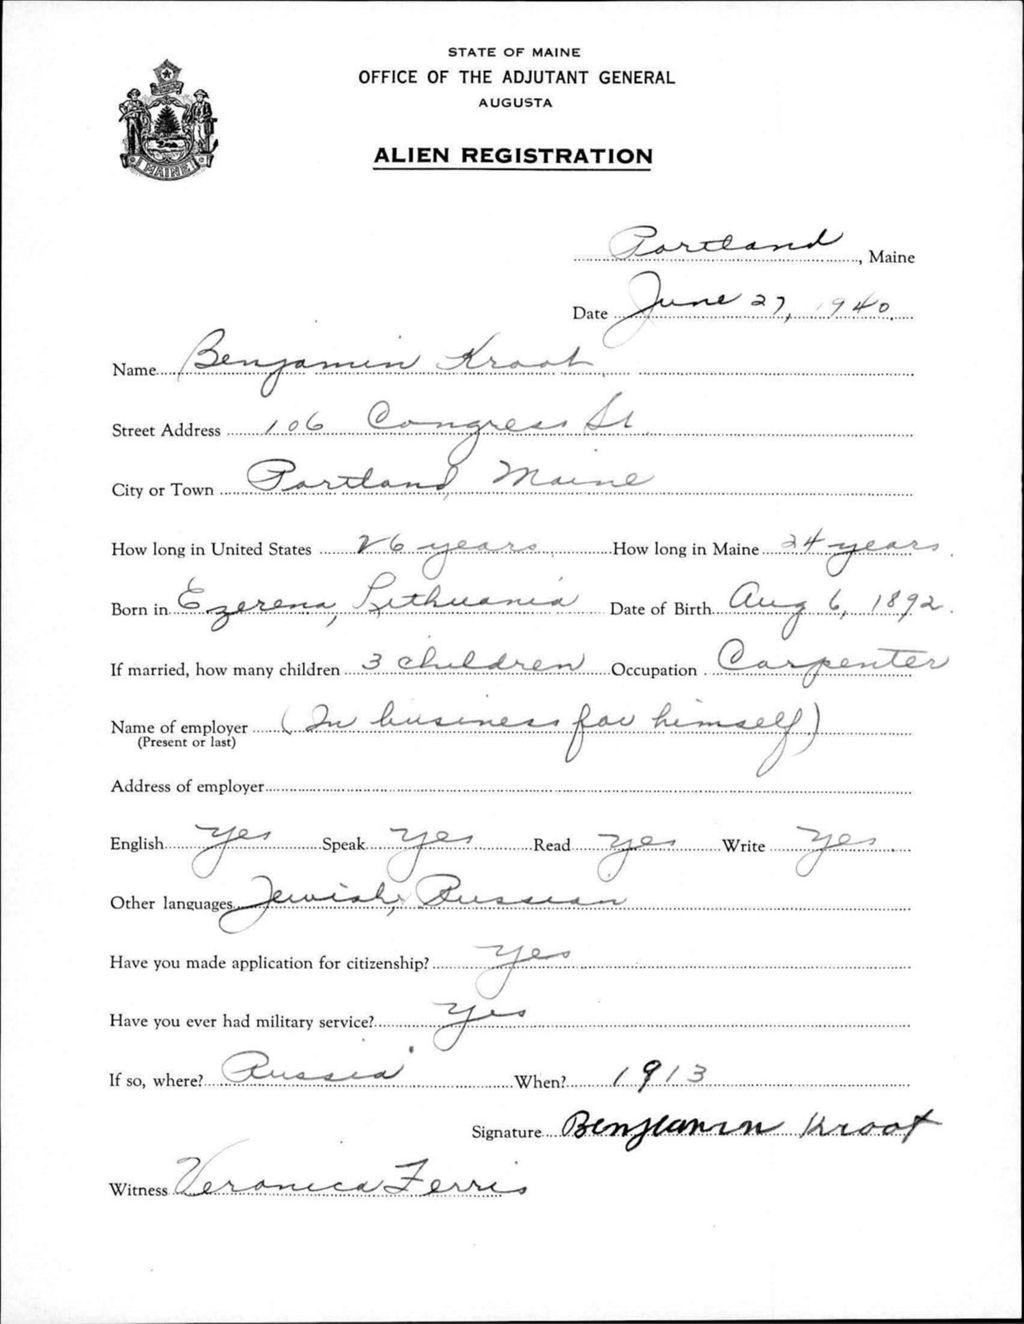 STATE OF MAINE
OFFICE OF THE ADJUTANT GENERAL
AUGUSTA
ALIEN REGISTRATION
MAINE
Portland, Maine
Date June 27, 1940
Name Benjamin Kroot
Street Address 106 Congress St
City or Town Portland, Maine
How long in United States 26 years How long in Maine 24 years
Born in Ezerena, Lithuania Date of Birth Aug 6, 1892.
If married, how many children 3 children Occupation Carpenter
Name of employer (In business for himself)
(Present or last)
Address of employer
English yes Speak yes Read yes Write yes
Other languages Jewish, Russian
Have you made application for citizenship? yes
Have you ever had military service? yes
If so, where? Russia When? 1913
Signature Benjamin Kroot
Witness Veronica Ferris